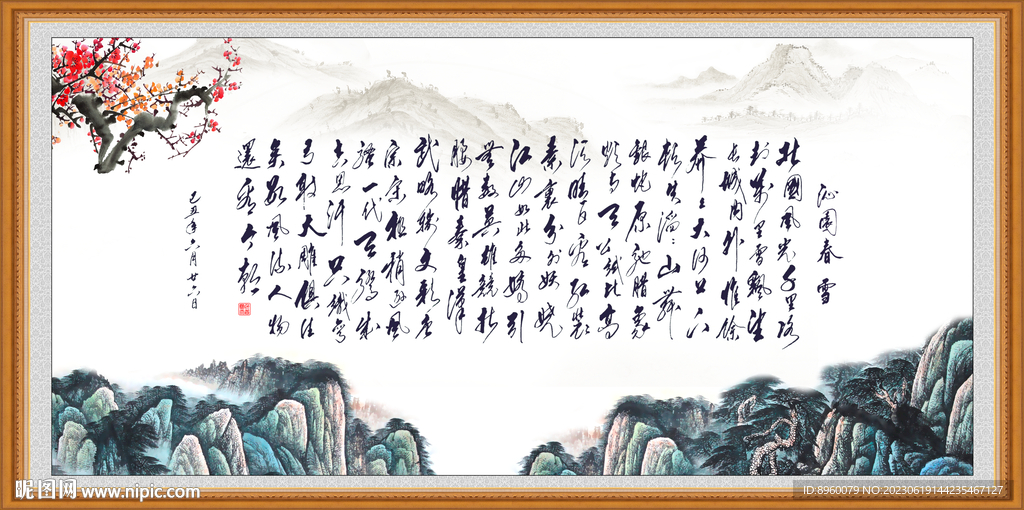 沁園春 雪
北國風光千里冰
封萬里雪飄望
长城内外惟餘
莽〻大河上下
頓失滔〻山舞
銀蛇原馳腊象
欲与天公試比高
须晴日看红装
素裹分外妖娆
江山如此多嬌引
無數英雄競折
腰惜秦皇漢
武略輸文彩唐
宗宋祖稍逊風
骚一代天驕成
吉思汗只識弯
弓射大雕俱往
矣数風流人物
還看今朝
己丑年六月廿六日
昵图网 www.nipic.com
ID:8960079 NO:20230619144235467127